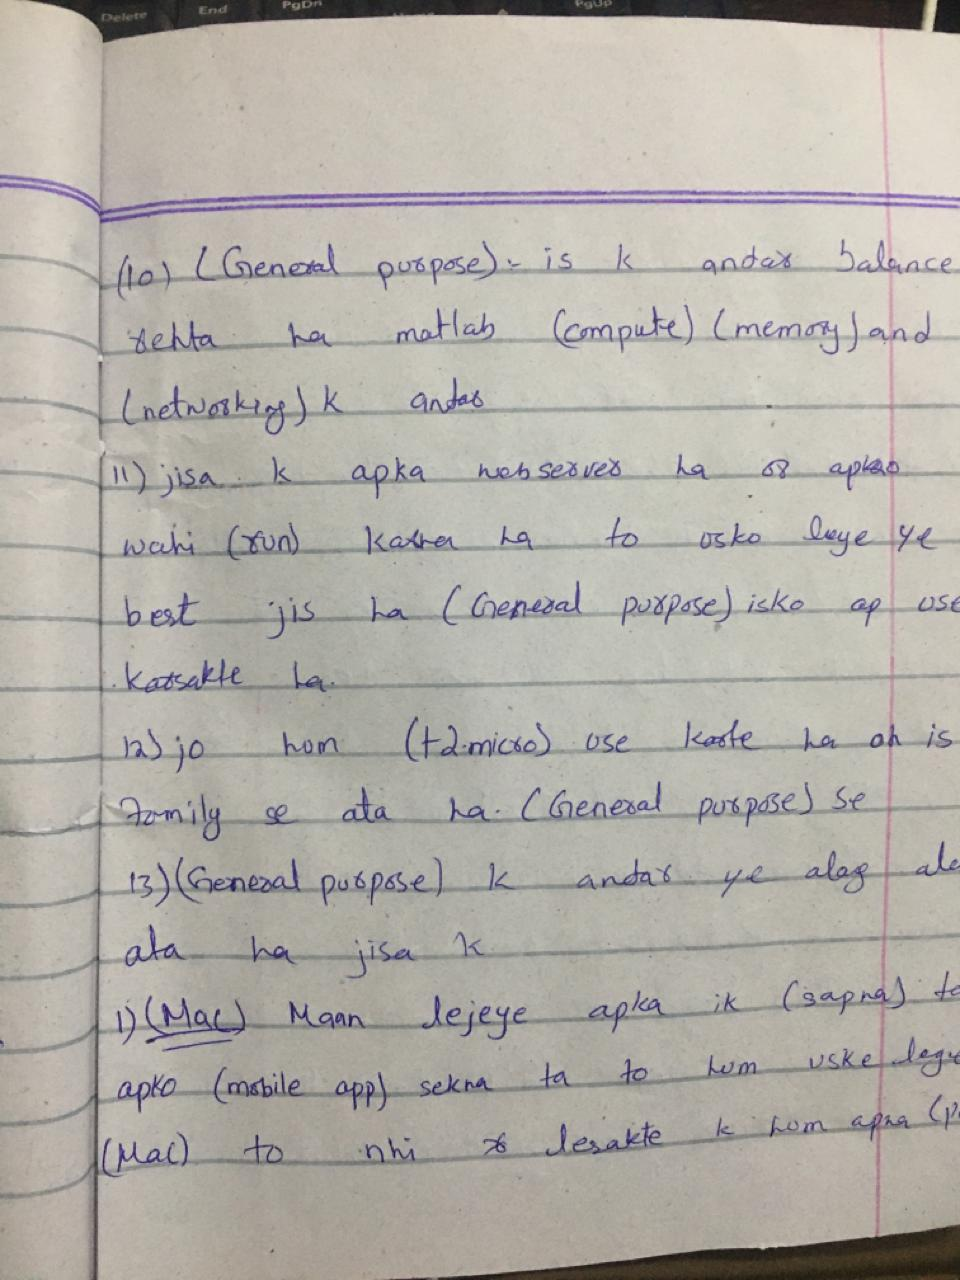 Delete End PgDn PgUp
(10) (General purpose):- is k andar balance
rehta ha matlab (compute) (memory) and
(networking) k andar
11) jisa k apka webserver ha or apkao
wahi (run) karna ha to usko leye ye
best jis ha (General purpose) isko ap use
karsakte ha.
12) jo hum (t2.micro) use karte ha oh is
family se ata ha. (General purpose) se
13) (General purpose) k andar ye alag ala
ata ha jisa k
1) (Mac) Maan lejeye apka ik (sapna) ta
apko (mobile app) sekna ta to hum uske
(Mac) to nhi lesakte k hum apna (p